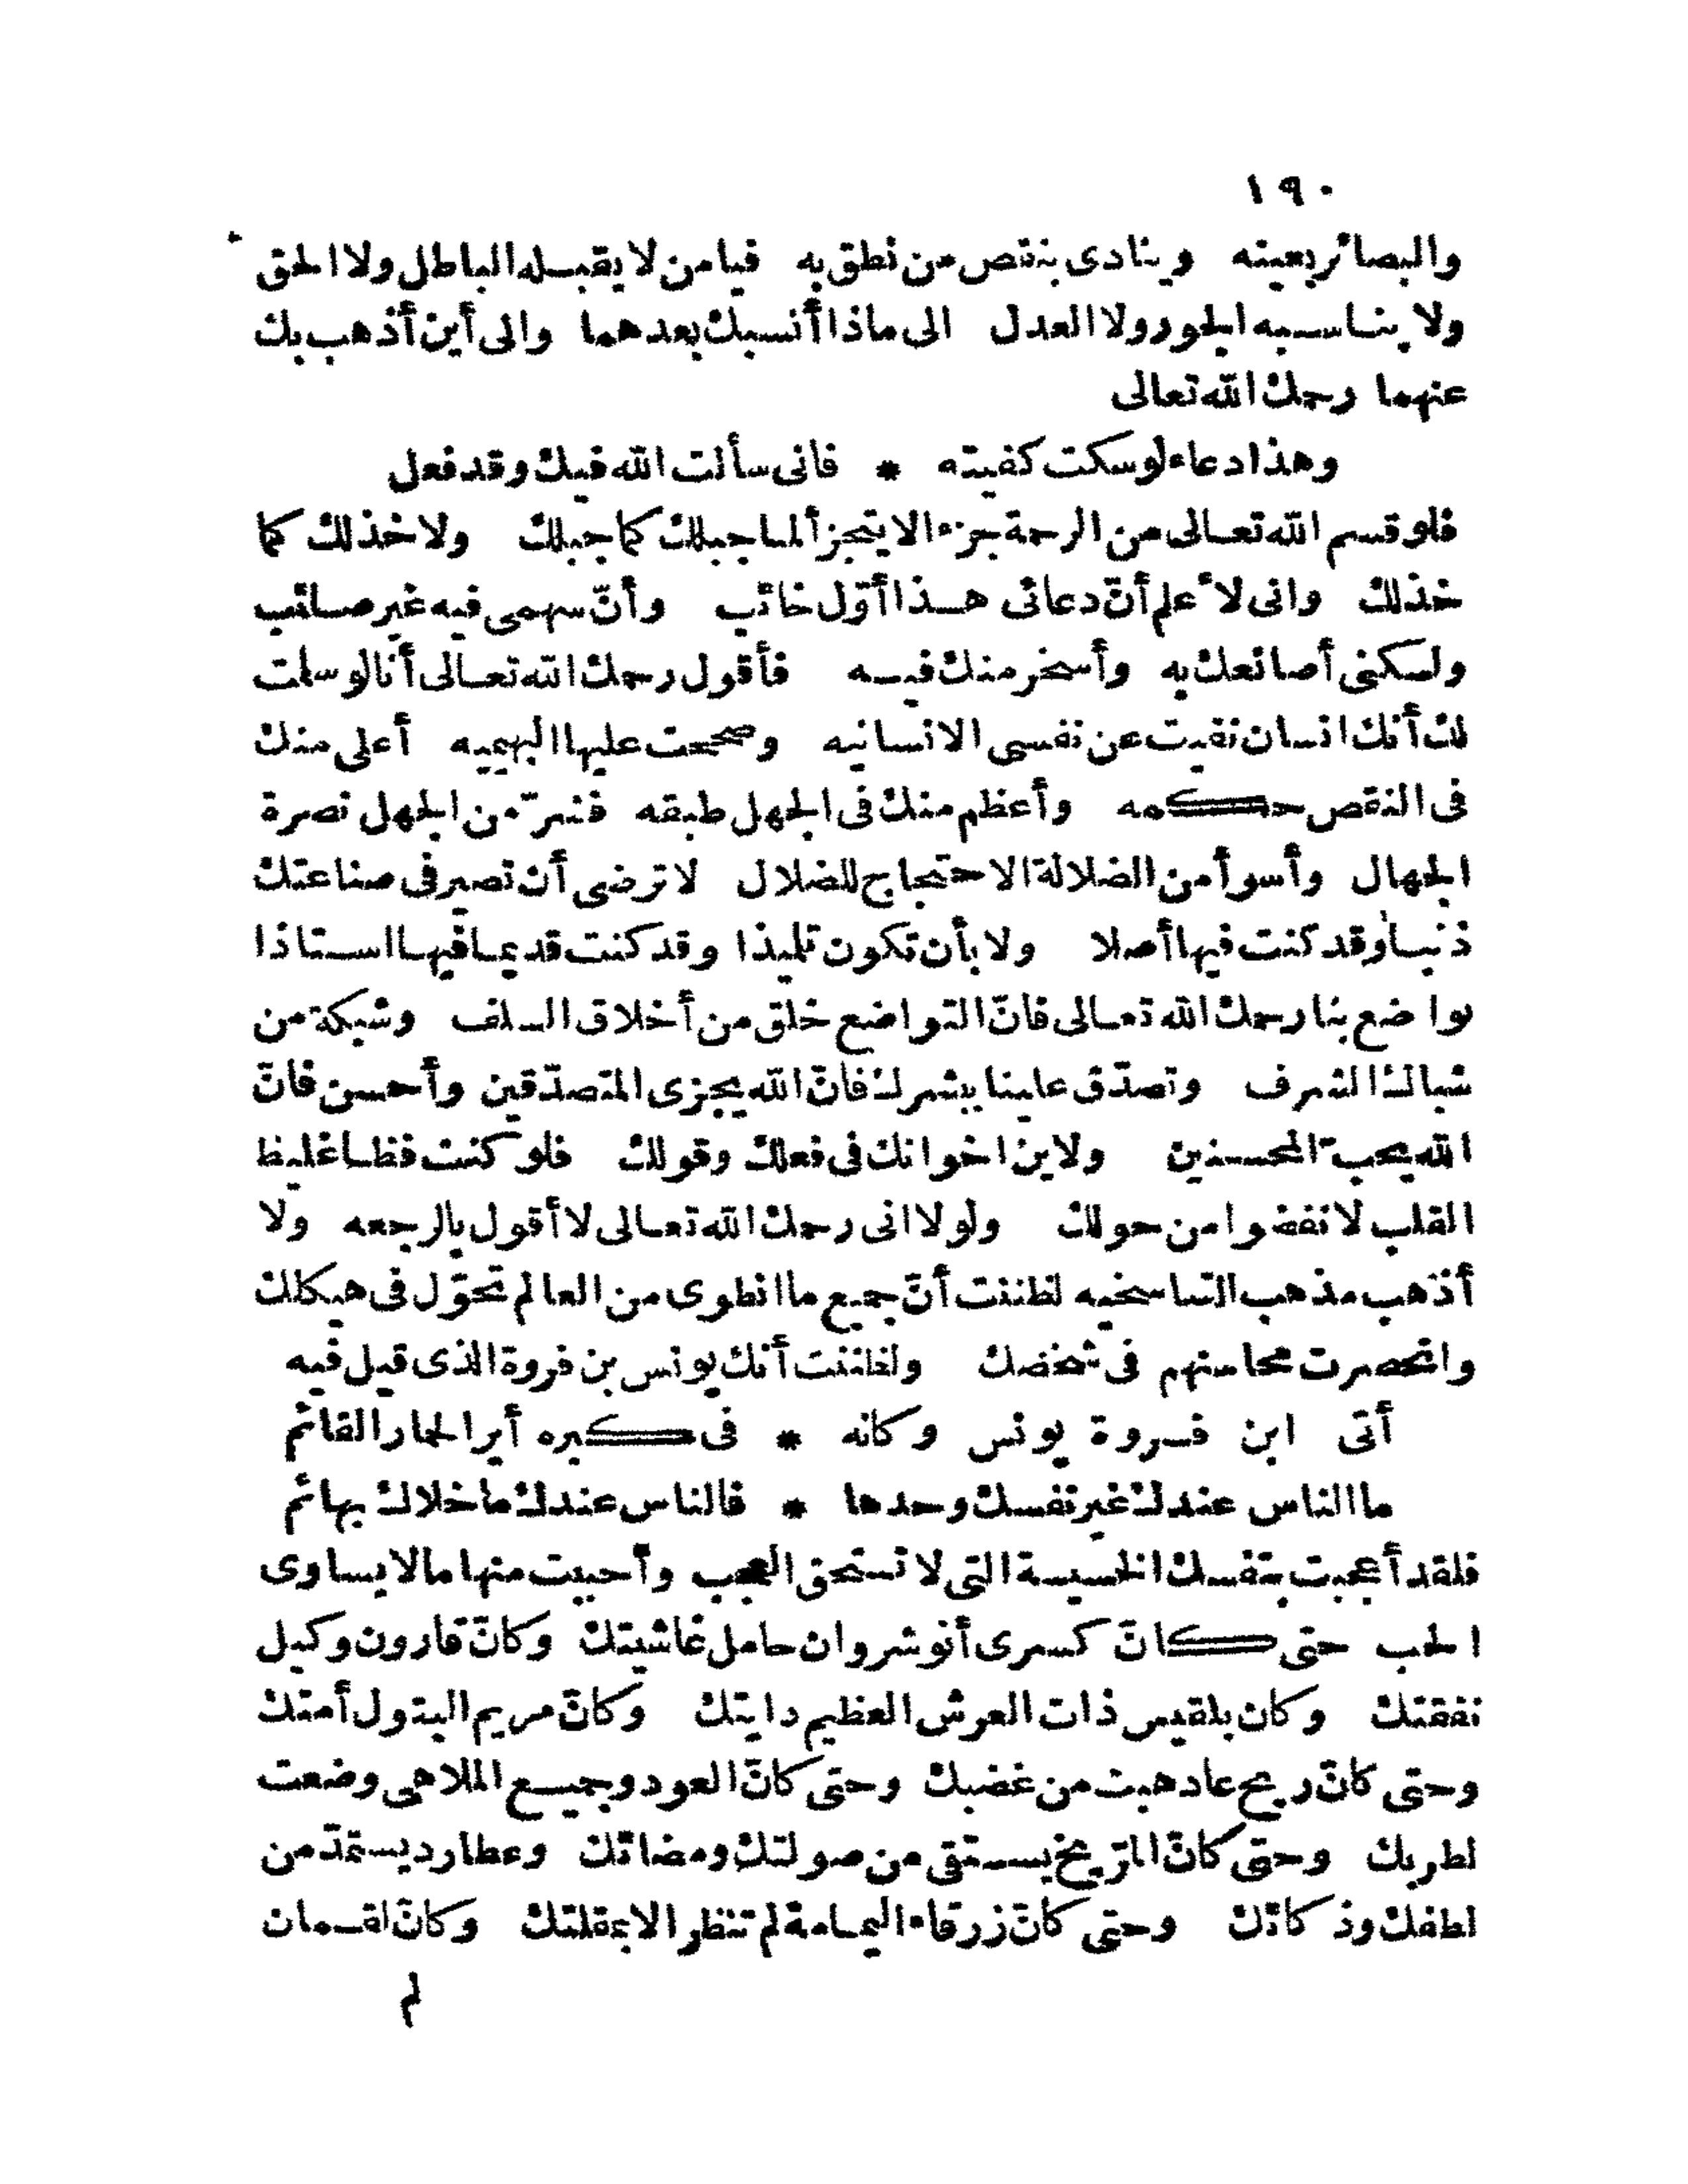 ١٩٠
والبصائر بعينه وينادى بنقص من نطق به فيا من لا يقبله الباطل ولا الحق
ولا يناسبه الجور ولا العدل الى ماذا أنسبك بعدهما والى أين أذهب بك
عنهما رحمك الله تعالى
وهذا دعاء لو سكت كفيته * فانى سألت الله فيك وقد فعل
فلو قسم الله تعالى من الرحمة جزء الا يتجزأ لما جبلك كما جبلك ولا خذلك كما
خذلك وانى لا علم أنّ دعائى هذا أوّل خائب وأنّ سهمى فيه غير صائب
ولكنى أصانعك به وأسخر منك فيه فأقول رحمك الله تعالى أنا لو سلمت
لك أنك انسان نفيت عن نفسى الانسانيه وصححت عليها البهيميه أعلى منك
فى النقص حكمه وأعظم منك فى الجهل طبقه فشرّ من الجهل نصرة
الجهال وأسوأ من الضلالة الاحتجاج للضلال لا ترضى أن تصير فى صناعتك
ذنبا وقد كنت فيها أصلا ولا بأن تكون تلميذا وقد كنت قديما فيها استاذا
تواضع بنا رحمك الله تعالى فانّ التواضع خلق من أخلاق السلف وشبكة من
شباك الشرف وتصدّق علينا ببشرك فانّ الله يجزى المتصدّقين وأحسن فانّ
الله يحبّ المحسنين ولاين اخوانك فى فعلك وقولك فلو كنت فظا غليظ
القلب لانفضوا من حولك ولولا انى رحمك الله تعالى لا أقول بالرجعه ولا
أذهب مذهب التناسخيه لظننت أنّ جميع ما انطوى من العالم تحوّل فى هيكلك
وانحصرت محاسنهم فى شخصك ولظننت أنك يونس بن فروة الذى قيل فيه
أتى ابن فروة يونس وكانه * فى كبره أير الحمار القائم
ما الناس عندك غير نفسك وحدها * فالناس عندك ما خلاك بهائم
فلقد أعجبت بنفسك الخسيسة التى لا تستحق العجب وأحببت منها ما لا يساوى
الحب حتى كانّ كسرى أنوشروان حامل غاشيتك وكانّ قارون وكيل
نفقتك وكان بلقيس ذات العرش العظيم دايتك وكانّ مريم البتول أمتك
وحتى كانّ ريح عاد هبت من غضبك وحتى كانّ العود وجميع الملاهى وضعت
لطربك وحتى كانّ المرّيخ يستقى من صولتك ومضائك وعطارد يستمدّ من
لطفك وذكائك وحتى كانّ زرقاء اليمامة لم تنظر الا بمقلتك وكانّ لقمان
لم